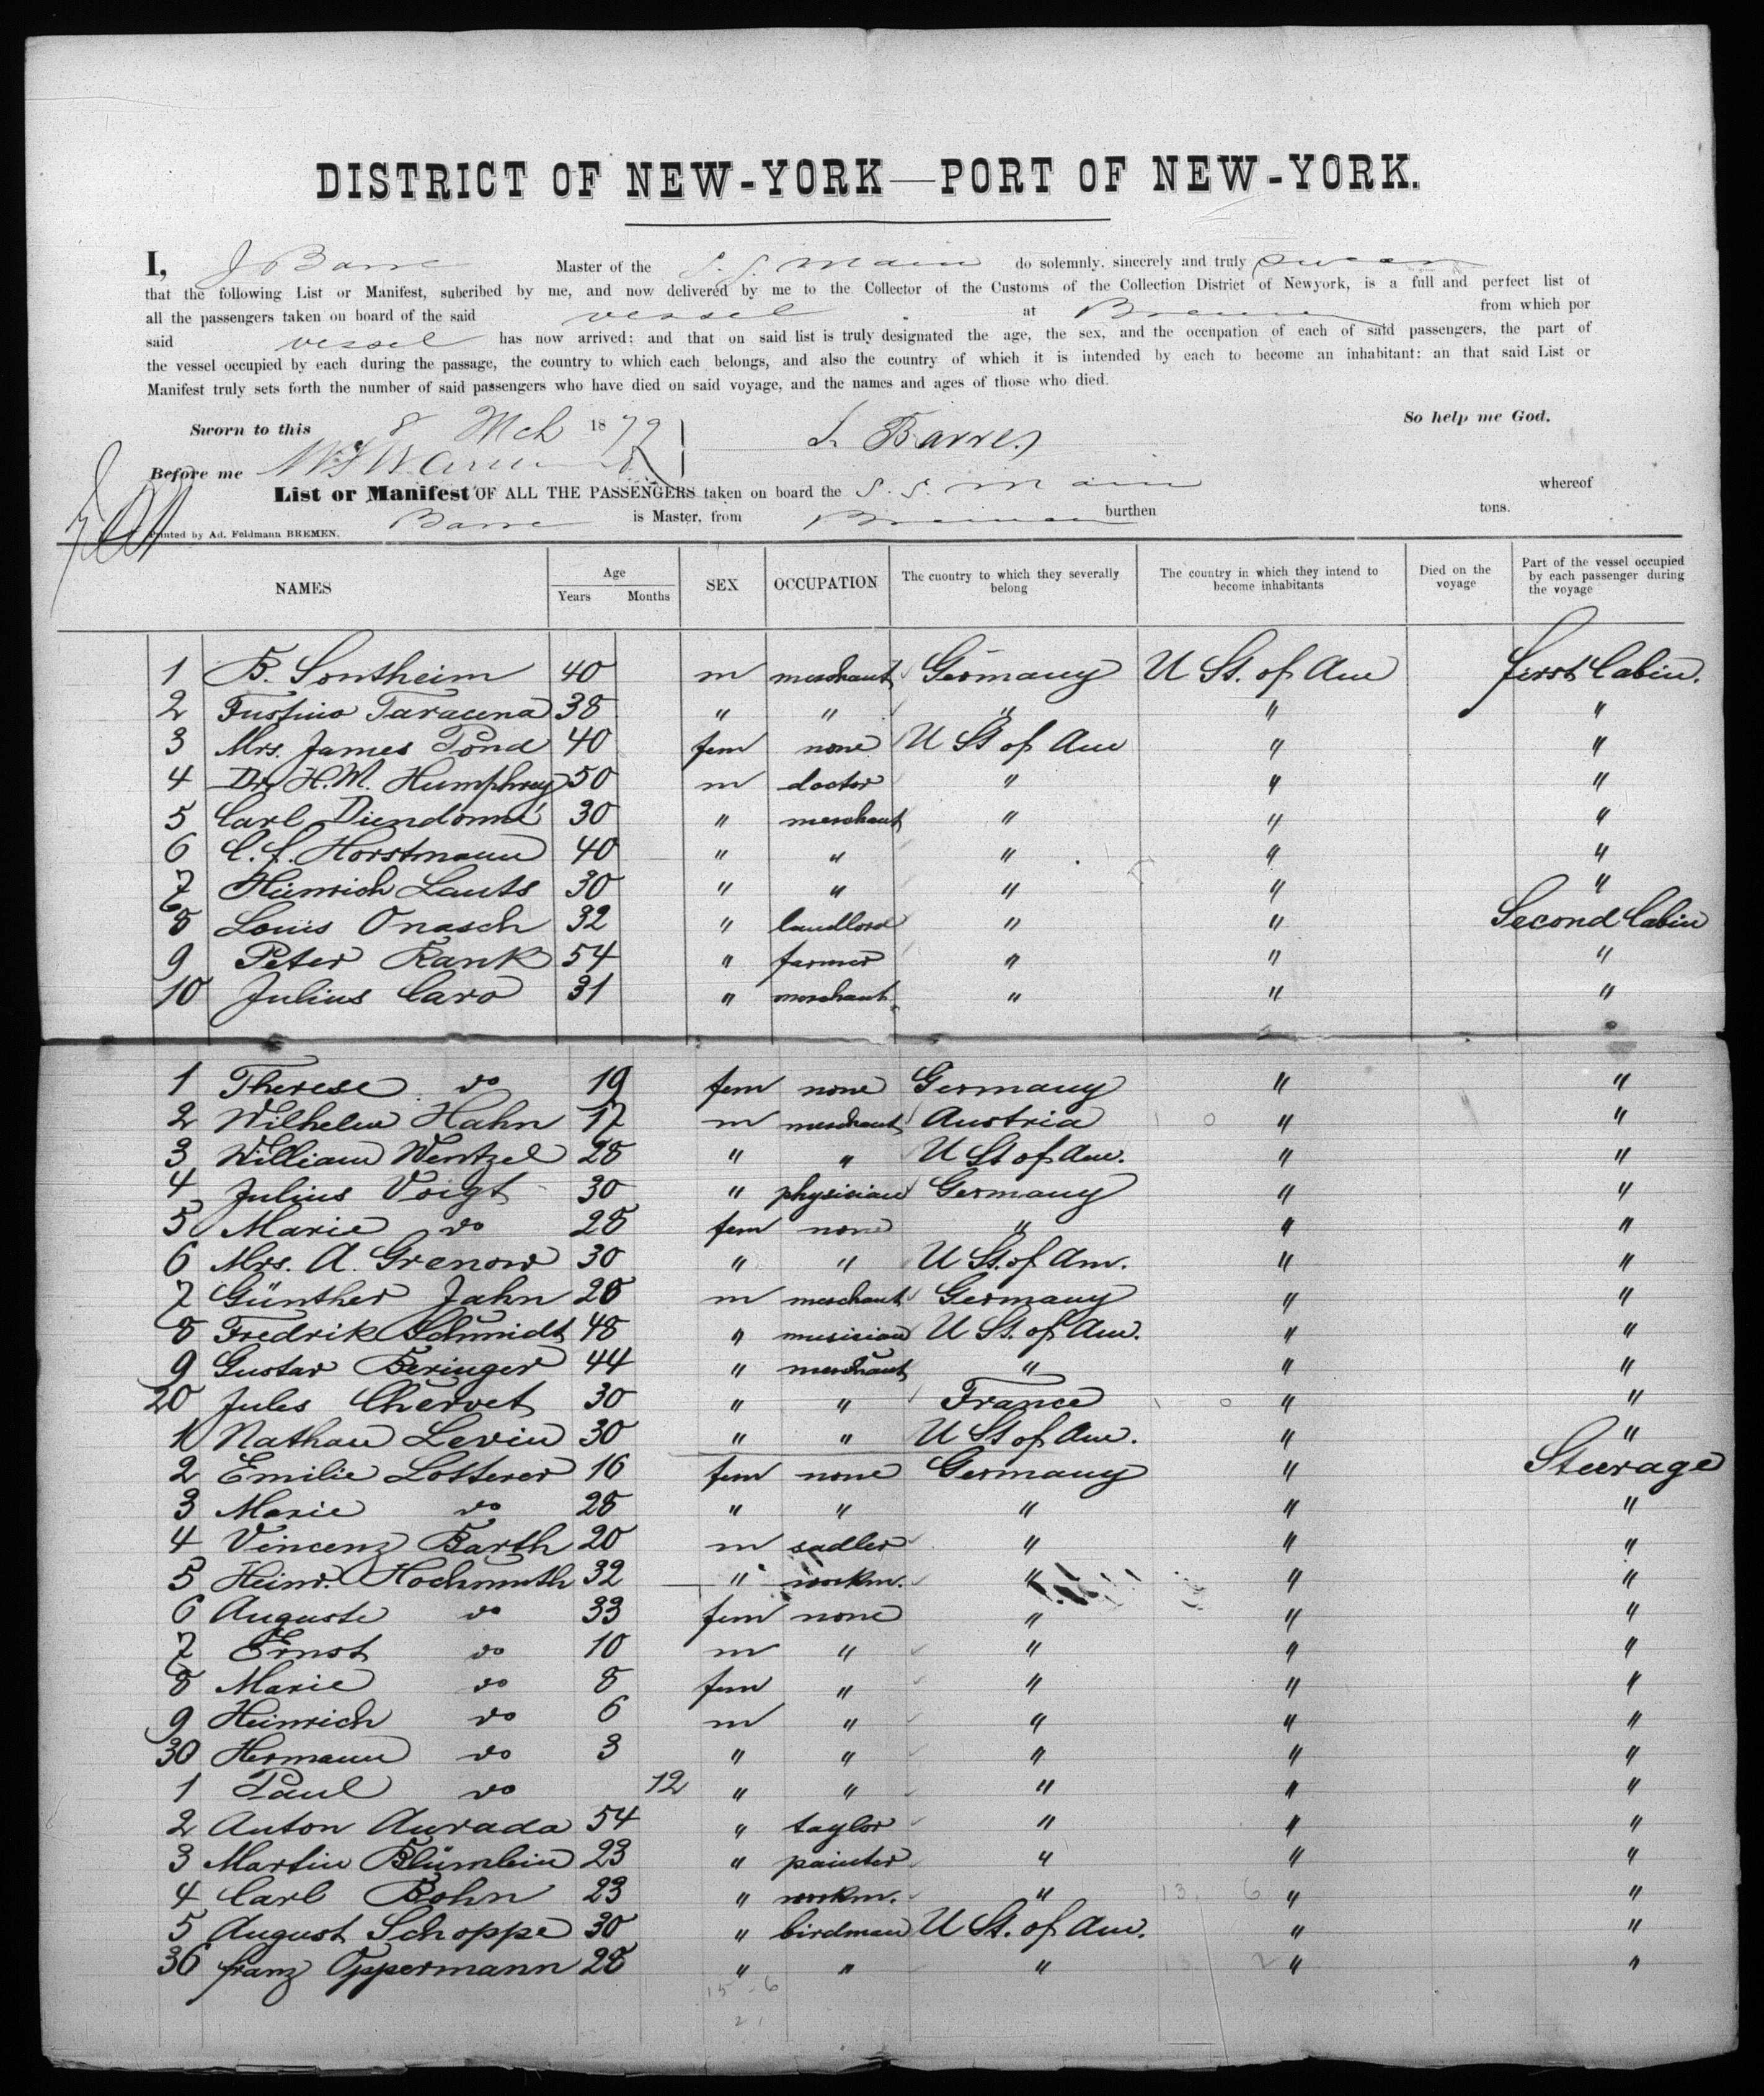 DISTRICT OF NEW-YORK—PORT OF NEW-YORK.
I, J Barre Master of the S. S. Main do solemnly, sincerely and truly swear
that the following List or Manifest, subcribed by me, and now delivered by me to the Collector of the Customs of the Collection District of Newyork, is a full and perfect list of
all the passengers taken on board of the said vessel at Bremen from which por
said vessel has now arrived; and that on said list is truly designated the age, the sex, and the occupation of each of said passengers, the part of
the vessel occupied by each during the passage, the country to which each belongs, and also the country of which it is intended by each to become an inhabitant: an that said List or
Manifest truly sets forth the number of said passengers who have died on said voyage, and the names and ages of those who died.
So help me God.
Sworn to this 8 Mch 1879
Barre
Before me
List or Manifest OF ALL THE PASSENGERS taken on board the S. S. Main whereof
Barre is Master, from Bremen burthen tons.
Printed by Ad. Feldmann BREMEN.
NAMES Age Years Months SEX OCCUPATION The cuontry to which they severally belong The country in which they intend to become inhabitants Died on the voyage Part of the vessel occupied by each passenger during the voyage
1 B. Sontheim 40 m merchant Germany U St. of Am first Cabin.
2 Fustino Taracena 38 " " " " "
3 Mrs. James Pond 40 fem none U St of Am " "
4 Dr. H. M. Humphrey 50 m doctor " " "
5 Carl Diendonné 30 " merchant " " "
6 C. f. Horstmann 40 " " " " "
7 Heinrich Lauts 30 " " " " "
8 Louis Onasch 32 " landlord " " Second Cabin
9 Peter Rank 54 " farmer " " "
10 Julius Caro 31 " merchant " " "
1 Therese do 19 fem none Germany " "
2 Wilhelm Hahn 17 m merchant Austria " "
3 William Wentzel 28 " " U St of Am. " "
4 Julius Voigt 30 " physician Germany " "
5 Marie do 28 fem none " " "
6 Mrs. A. Grenow 30 " " U St. of Am. " "
7 Günther Jahn 28 m merchant Germany " "
8 Fredrik Schmidt 48 " musician U St. of Am. " "
9 Gustav Beringer 44 " merchant " " "
20 Jules Chervet 30 " " France " "
1 Nathan Levin 30 " " U St of Am. " "
2 Emilie Lotterer 16 fem none Germany " Steerage
3 Marie do 28 " " " " "
4 Vincenz Barth 20 m sadler " " "
5 Heinr. Hochmuth 32 " workm. " " "
6 Auguste do 33 fem none " " "
7 Ernst do 10 m " " " "
8 Marie do 8 fem " " " "
9 Heinrich do 6 m " " " "
30 Hermann do 3 " " " " "
1 Paul do 12 " " " " "
2 Anton Aurada 54 " taylor " " "
3 Martin Blümlein 23 " painter " " "
4 Carl Bohn 23 " workm. " " "
5 August Schoppe 30 " birdman U St. of Am. " "
36 franz Oppermann 28 " " " " "